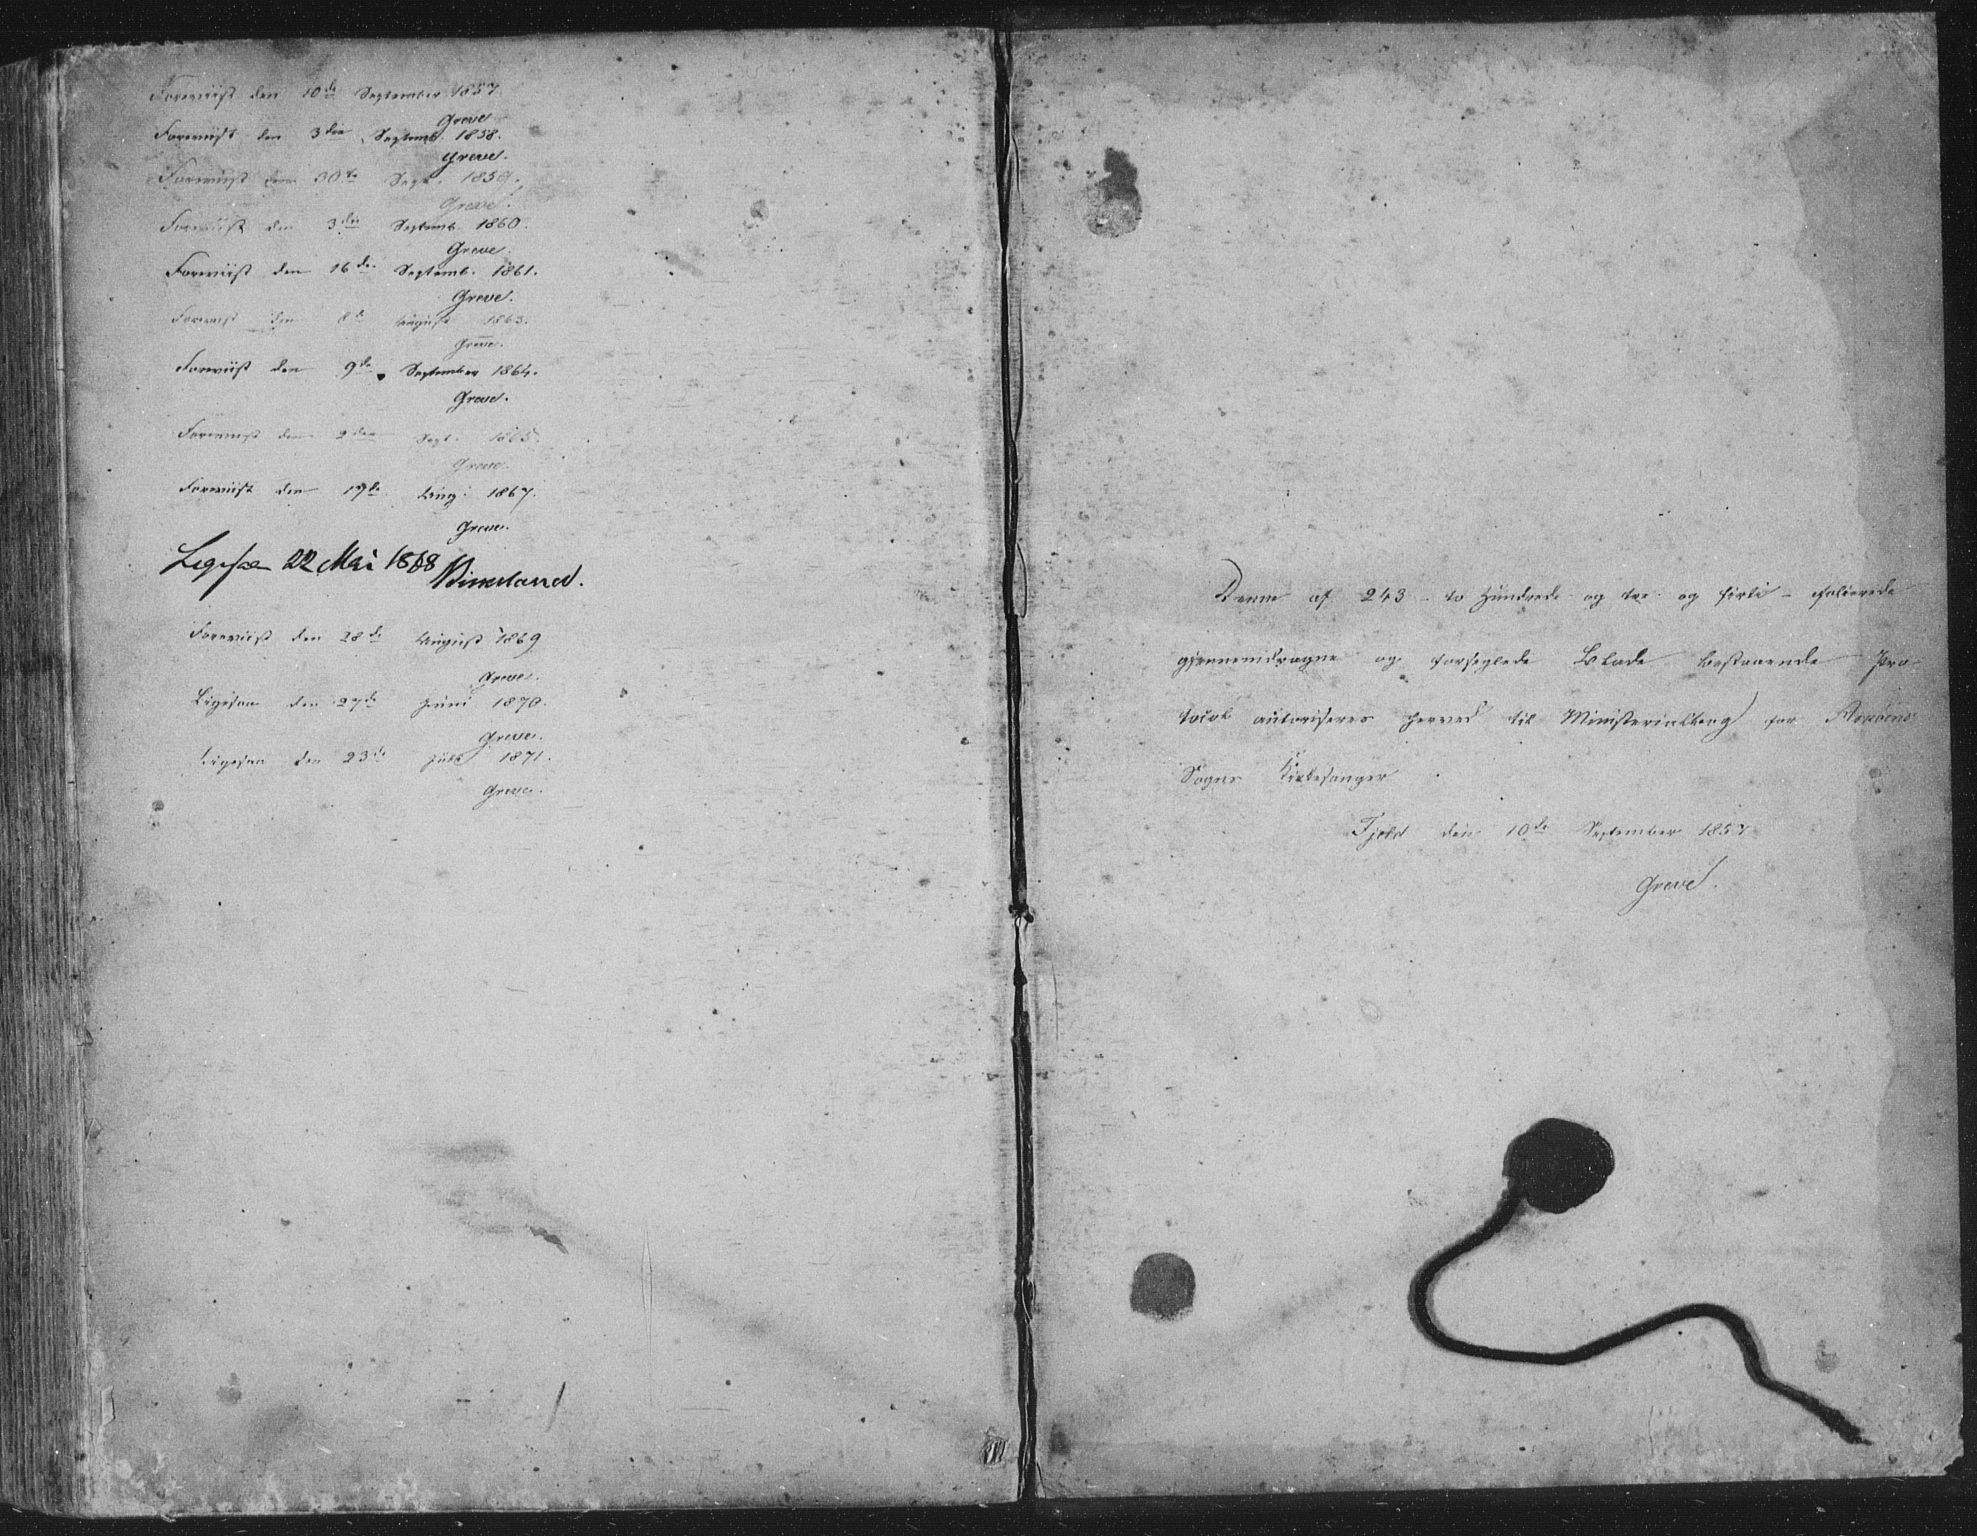 Foreviist den 10de September 1857
Greve
Foreviist den 3die Septemb. 1858.
Greve.
Foreviist den 30te Sept. 1859.
Greve.
Foreviist den 3die Septemb. 1860.
Greve.
Foreviist den 16de Septemb. 1861.
Greve.
Foreviist den 8de August 1863.
Greve.
Foreviist den 9de September 1864.
Greve.
Foreviist den 2den Sept. 1865.
Greve.
Foreviist den 19de Aug: 1867.
Greve.
Ligesaa 22 Mai 1868
Foreviist den 28de August 1869
Greve.
Ligesaa den 27de Juni 1870.
Greve.
Ligesaa den 23de Juli 1871.
Greve.
Denne af 243 - to Hundrede og tre og firti - folierede
gjennemdragne og forseglede Blade bestaaende Pro
tocol autoriseres herved til Ministerialbog for
Sogns Kirkesanger
Fjeld den 10de September 1857
Greve.